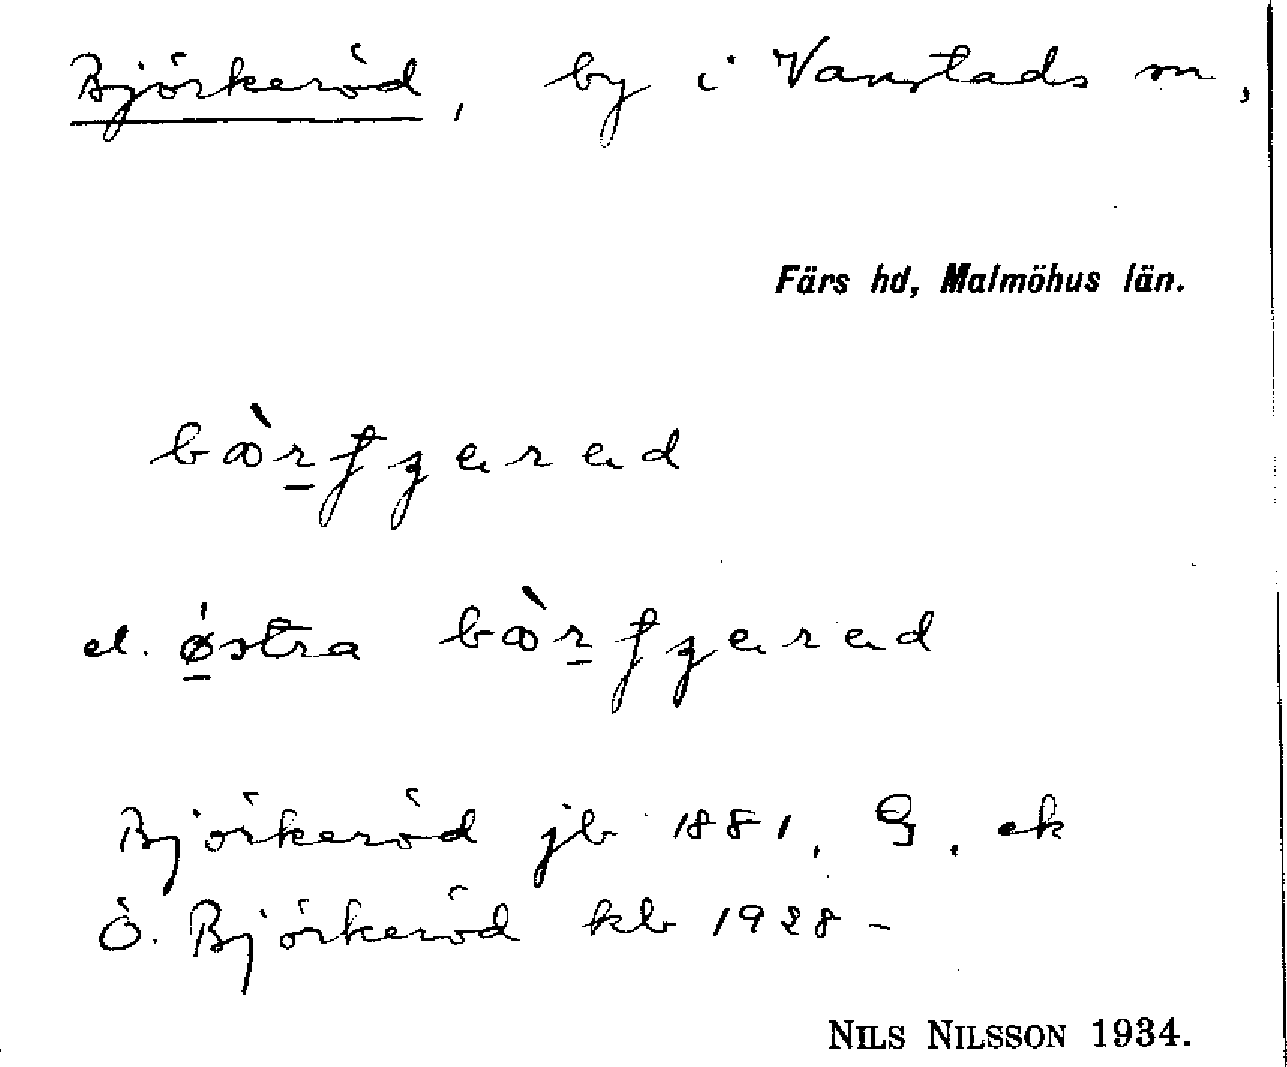 Björkeröd, by i Vanstads sn,
Färs hd, Malmöhus län.
bœ̀r̲ʄɡered
el. ǿ̲stra bœ̀r̲ʄɡered
Björkeröd jb 1881, G, ek
Ö. Björkeröd kb 1928 -
NILS NILSSON 1934.